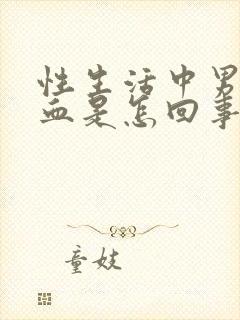 性生活中男
血是怎回事
童妓